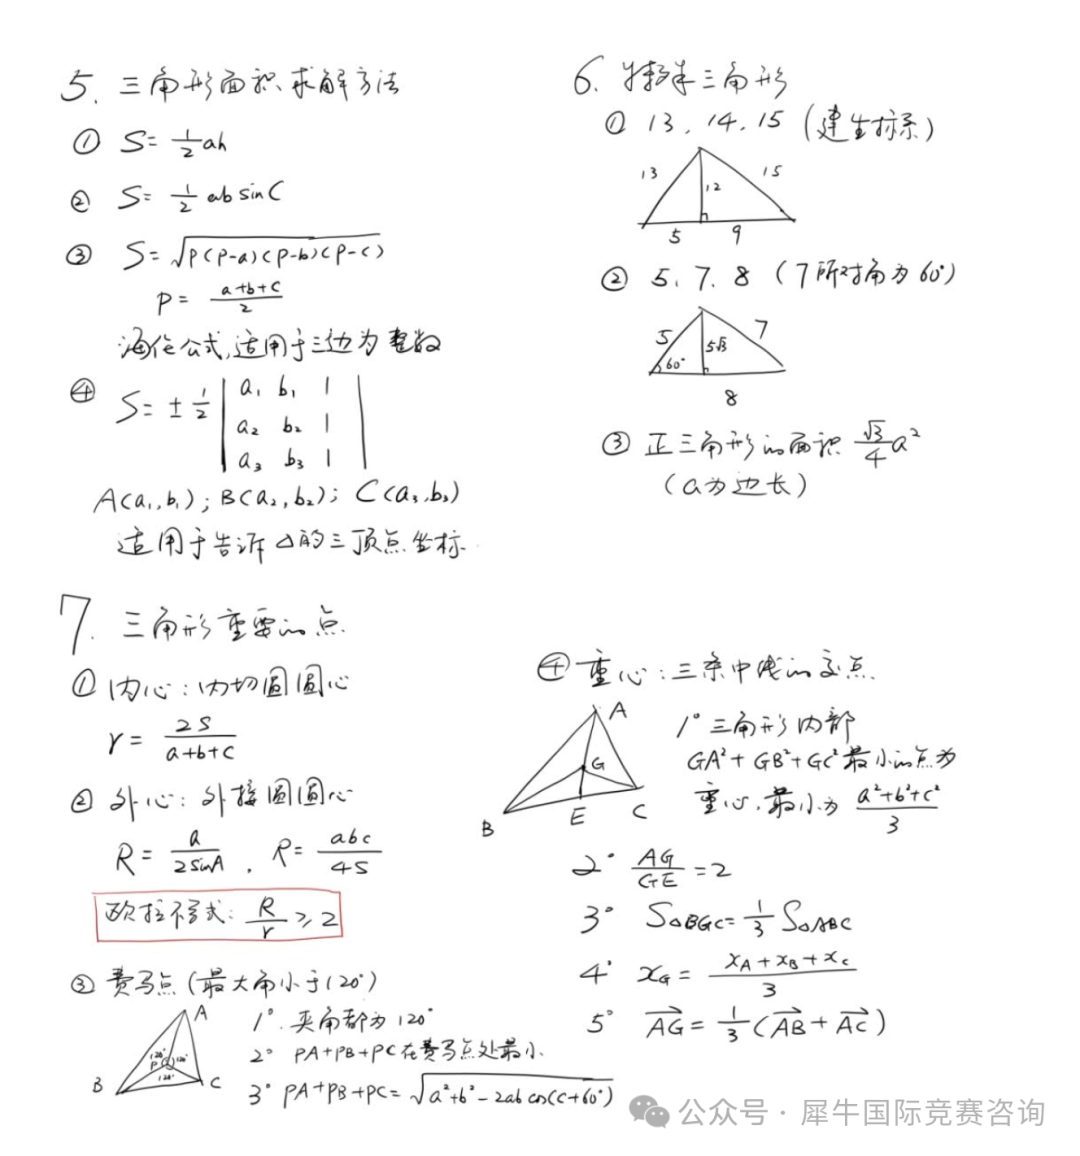 5. 三角形面积求解方法
① S= 1/2 ah
② S= 1/2 ab sinC
③ S=√P(P-a)(P-b)(P-c)
P= a+b+c/2
海伦公式,适用于三边为整数
④ S=±1/2 | a₁ b₁ 1 |
| a₂ b₂ 1 |
| a₃ b₃ 1 |
A(a₁,b₁); B(a₂,b₂); C(a₃,b₃)
适用于告诉△的三顶点坐标.
6. 特殊三角形
① 13, 14, 15 (建坐标系)
13 12 15
5 9
② 5、7、8 (7所对角为60°)
5 5√3 7
60°
8
③ 正三角形的面积 √3/4 a²
(a为边长)
7. 三角形重要的点
① 内心: 内切圆圆心
r= 2S/a+b+c
② 外心: 外接圆圆心
R= a/2sinA , R= abc/4S
欧拉不等式: R/r ≥2
③ 费马点(最大角小于120°)
A
120° P 120°
120°
B C
1°. 夹角都为120°
2° PA+PB+PC在费马点处最小.
3° PA+PB+PC=√a²+b²-2ab cos(C+60°)
④ 重心: 三条中线的交点.
A
G
B E C
1° 三角形内部
GA²+GB²+GC²最小的点为
重心,最小为 a²+b²+c²/3
2° AG/GE =2
3° S△BGC= 1/3 S△ABC
4° x_G= x_A+x_B+x_C/3
5° AG→= 1/3 (AB→+AC→)
公众号·犀牛国际竞赛咨询